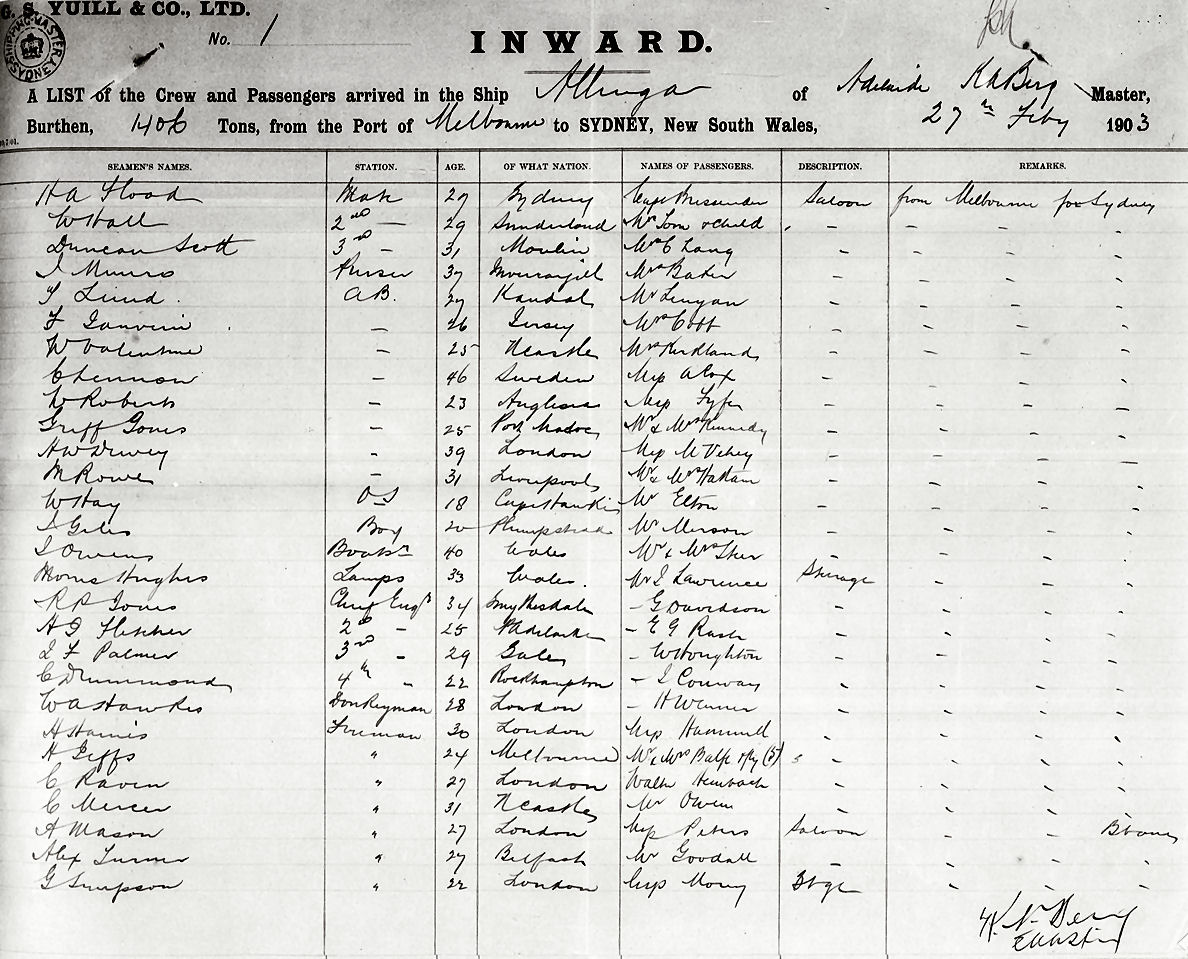 G. S. YUILL & CO., LTD.
SHIPPING MASTER SYDNEY
No. 1
INWARD.
A LIST of the Crew and Passengers arrived in the Ship Allinga of Adelaide K N Berg Master,
Burthen, 1406 Tons, from the Port of Melbourne to SYDNEY, New South Wales, 27th Feby 1903
SEAMEN'S NAMES. STATION. AGE. OF WHAT NATION. NAMES OF PASSENGERS. DESCRIPTION. REMARKS.
H A Flood Mate 27 Sydney Saloon from Melbourne for Sydney
W Hall 2nd — 29 Sunderland & child " — — —
Duncan Scott 3rd — 31 Moulin Mr C Lang — — — —
J Munro Purser 37 Invercargill Mrs Baker — — — —
Lund A.B. 27 Mr Lenyon — — — —
F — 26 Jersey Mrs Cobb — — — —
W Valentine — 25 Ncastle Mrs Kirkland — — — —
— 46 Sweden Miss A Cox — — — —
W Roberts — 23 Anglesea Miss Fyfe — — — —
Griff Jones — 25 Port Madoc Mr & Mrs Kennedy — — — —
H W Dewey - 39 London Miss — — — —
M Rowe — 31 Liverpool Mr & Mrs Hattam — — — —
W Hay OS 18 Mr Elton — — — —
J Giles Boy 20 Plumpstead Mr Merson — — — —
J Owens Boatsn 40 Wales Mr & Mrs — — — —
Morris Hughes Lamps 33 Wales. Mr J Lawrence Steerage - - -
R P Jones Chief Engr 34 Smythesdale — G Davidson - - - -
A J Fletcher 2nd - 25 Adelaide — E G Rash - - - -
J F Palmer 3rd - 29 - W Houghton - - - -
C Drummond 4th " 22 Rockhampton — J Conway - - - -
W A Hawkes Donkeyman 28 London — H Werner - - - -
H Harris Fireman 30 London Miss Hammill - - - -
H Giffs " 24 Melbourne Mr & Mrs Balfe & fly (5) " - - -
C Raven " 27 London Walter - - - -
C Mercer " 31 Ncastle Mr Owen - - - -
A Mason " 27 London Miss Peters Saloon - - Bbane
Alex Turner " 27 Belfast Mr Goodall - - - -
G Simpson " 22 London Stge - - -
K. N. Berg